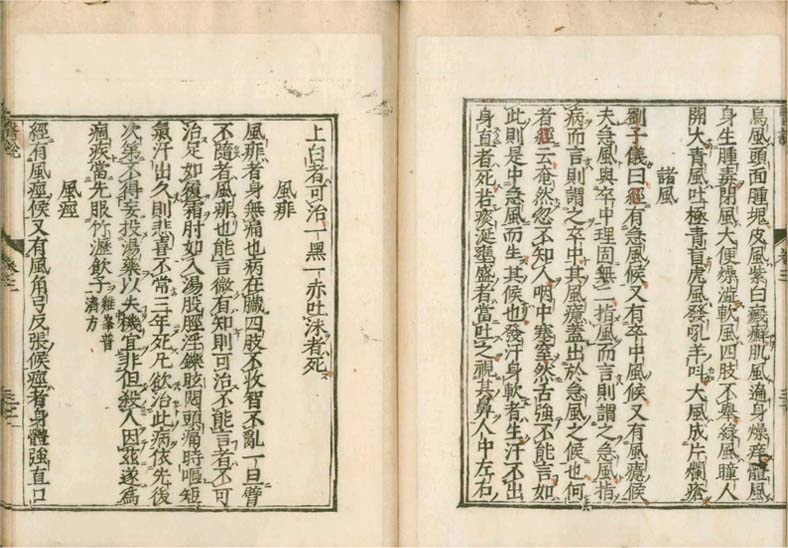 烏風頭面腫塊皮風紫白癜癬肌風遍身燥痒體風
身生腫毒閉風大便燥澁軟風四肢不舉綠風瞳人
開大青風吐極青盲虎風發吼羊叫大風成片爛瘡
諸風
劉子儀曰經有急風候又有卒中風候又有風癔候
夫急風與卒中理固無二指風而言則謂之急風指
病而言則謂之卒中其風癔蓋出於急風之候也何
者經云奄然忽不知人咽中塞窒然舌強不能言如
此則是中急風而生其候也發汗身軟者生汗不出
身直者死若痰涎壅盛者當吐之視其鼻人中左右
上白者可治一黑一赤吐沫者死
風痱
風痱者身無痛也病在臟四肢不收智不亂一旦臂
不隨者風痱也能言微有知則可治不能言者不可
治足如履霜肘如入湯股脛淫鑠眩悶頭痛時嘔短
氣汗出久則悲喜不常三年死凡欲治此病依先後
次第不得妄投湯藥以失機宜非但殺人因茲遂爲
痼疾當先服竹瀝飲子雞峯普濟方
風痙
經有風痙候又有風角弓反張候痙者身體強直口